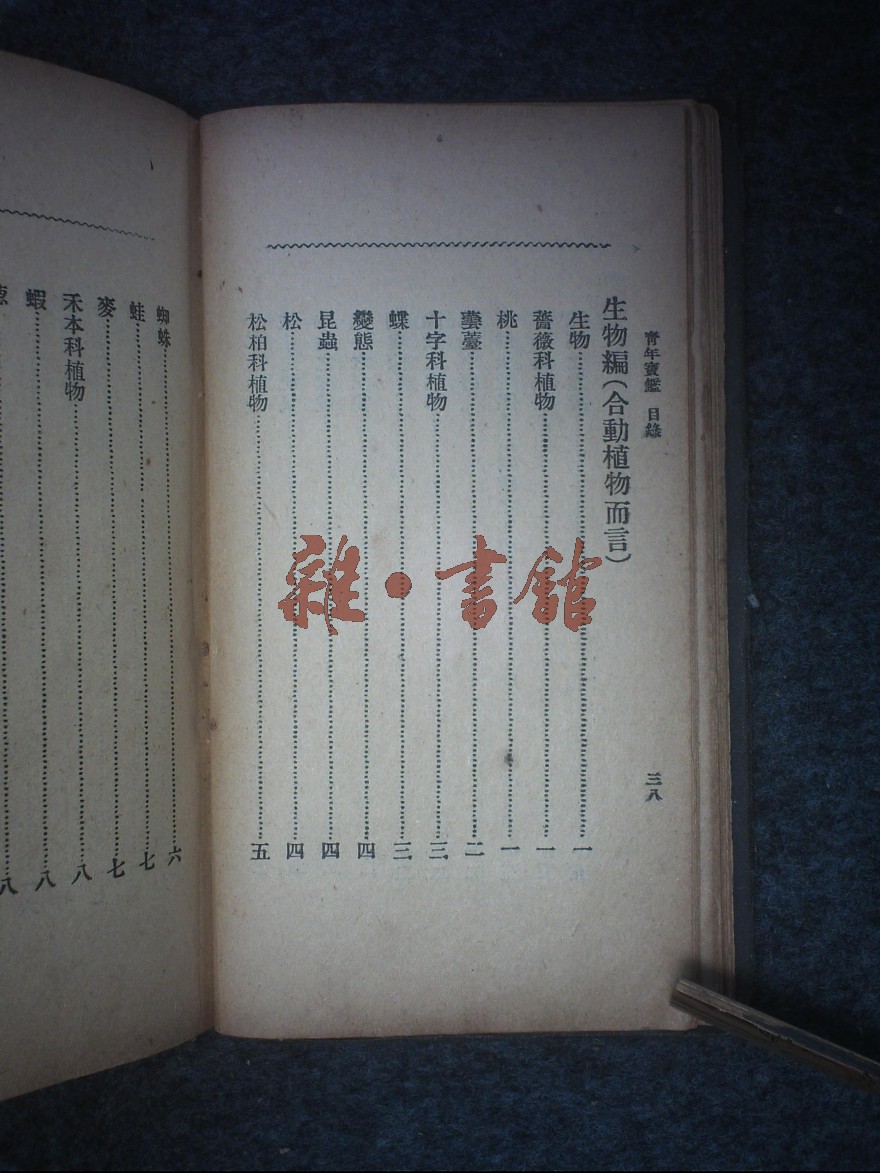 青年寶鑑 目錄 三八
生物編(合動植物而言)
生物 一
薔薇科植物 一
桃 一
蕓薹 二
十字科植物 三
蝶 三
變態 四
昆蟲 四
松 四
松柏科植物 五
蜘蛛 六
蛙 七
麥 七
禾本科植物 八
蝦 八
八
雜·書館